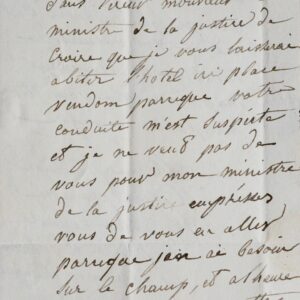 ministre de la justice de
Croire que je vous laisserai
abiter l'hotel ici place
vendom parceque votre
conduite m'est suspécte
et je ne veut pas de
vous pour mon ministre
de la justice empréssés
vous de vous en aller
parceque jan ai besoin
sur le champ, et a l'heure